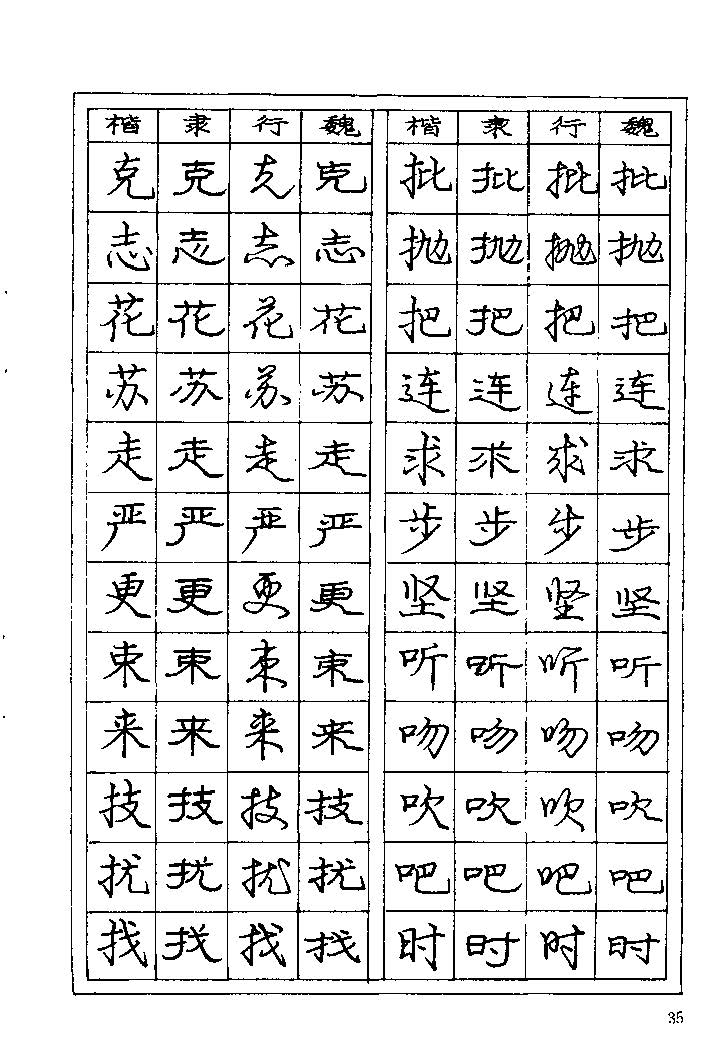 楷 隶 行 魏 楷 隶 行 魏
克 克 克 克 批 批 批 批
志 志 志 志 抛 抛 抛 抛
花 花 花 花 把 把 把 把
苏 苏 苏 苏 连 连 连 连
走 走 走 走 求 求 求 求
严 严 严 严 步 步 步 步
更 更 更 更 坚 坚 坚 坚
束 束 束 束 听 听 听 听
来 来 来 来 吻 吻 吻 吻
技 技 技 技 吹 吹 吹 吹
扰 扰 扰 扰 吧 吧 吧 吧
找 找 找 找 时 时 时 时
35